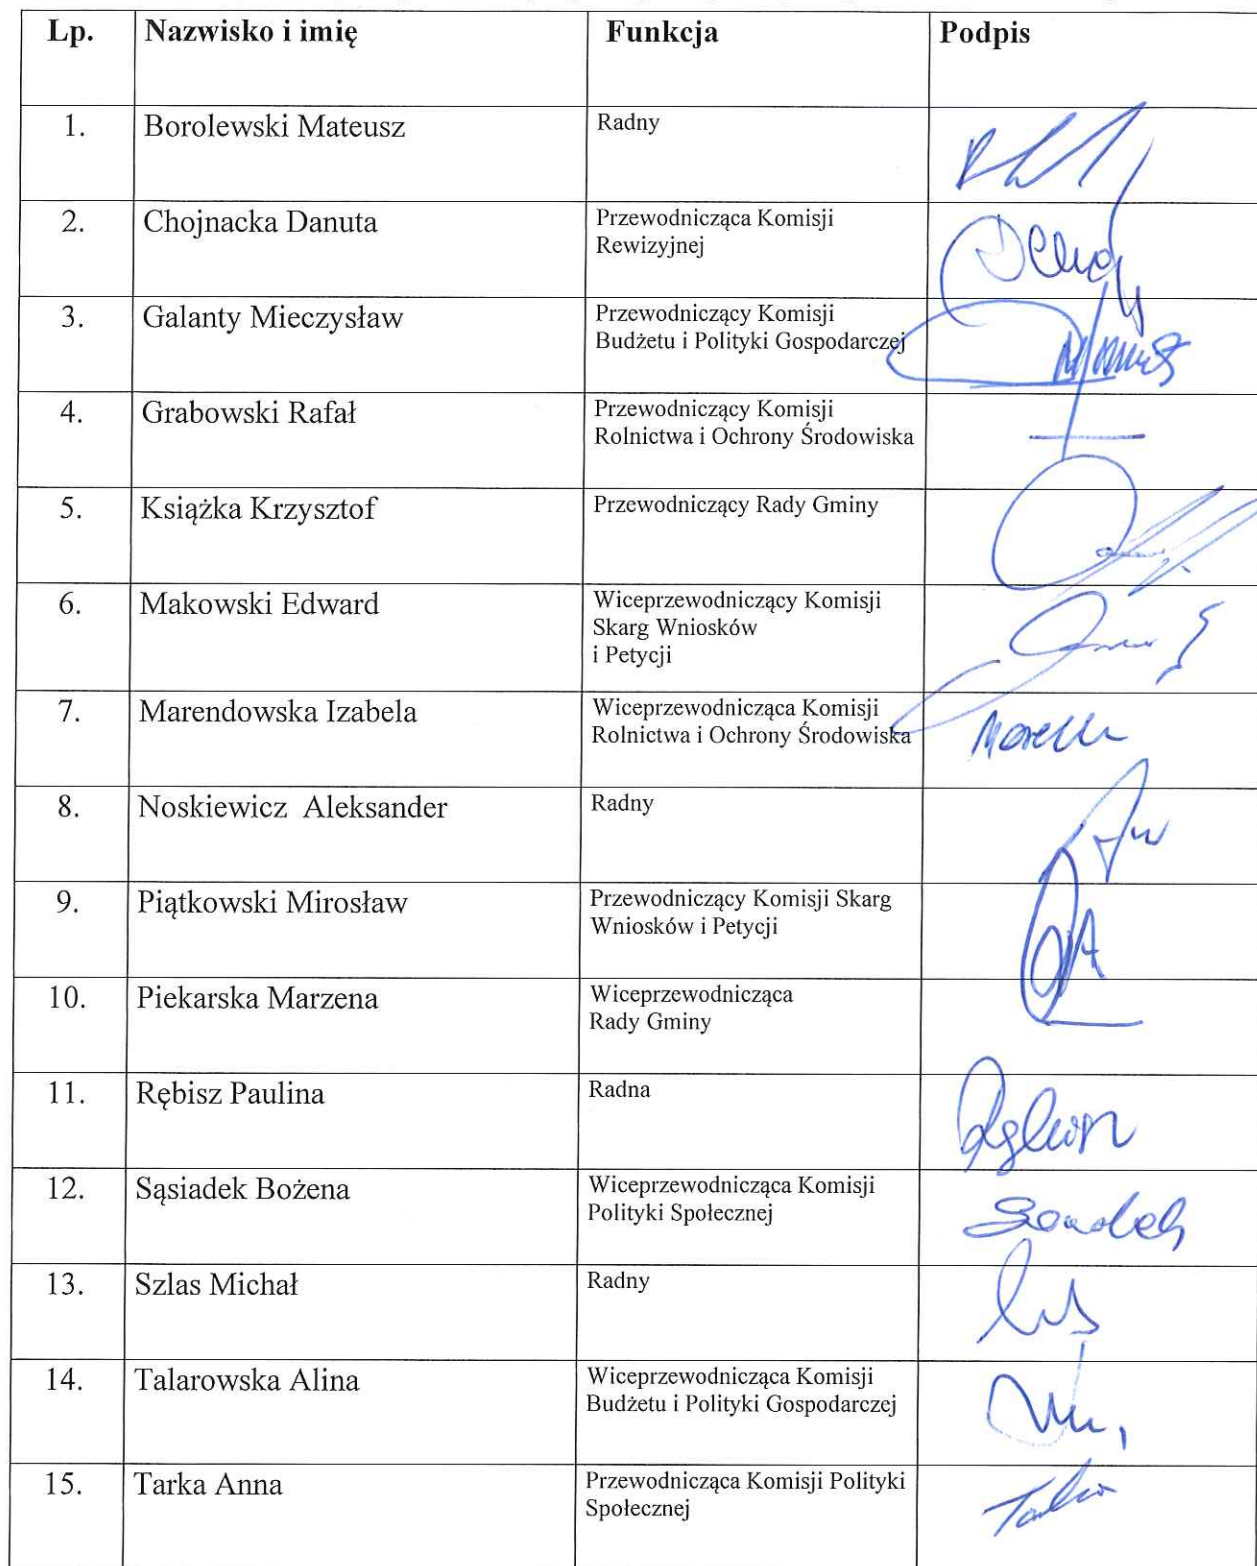 Lp. Nazwisko i imię Funkcja Podpis
1. Borolewski Mateusz Radny
2. Chojnacka Danuta Przewodnicząca Komisji
Rewizyjnej
3. Galanty Mieczysław Przewodniczący Komisji
Budżetu i Polityki Gospodarczej
4. Grabowski Rafał Przewodniczący Komisji
Rolnictwa i Ochrony Środowiska
5. Książka Krzysztof Przewodniczący Rady Gminy
6. Makowski Edward Wiceprzewodniczący Komisji
Skarg Wniosków
i Petycji
7. Marendowska Izabela Wiceprzewodnicząca Komisji
Rolnictwa i Ochrony Środowiska
8. Noskiewicz Aleksander Radny
9. Piątkowski Mirosław Przewodniczący Komisji Skarg
Wniosków i Petycji
10. Piekarska Marzena Wiceprzewodnicząca
Rady Gminy
11. Rębisz Paulina Radna
12. Sąsiadek Bożena Wiceprzewodnicząca Komisji
Polityki Społecznej
13. Szlas Michał Radny
14. Talarowska Alina Wiceprzewodnicząca Komisji
Budżetu i Polityki Gospodarczej
15. Tarka Anna Przewodnicząca Komisji Polityki
Społecznej